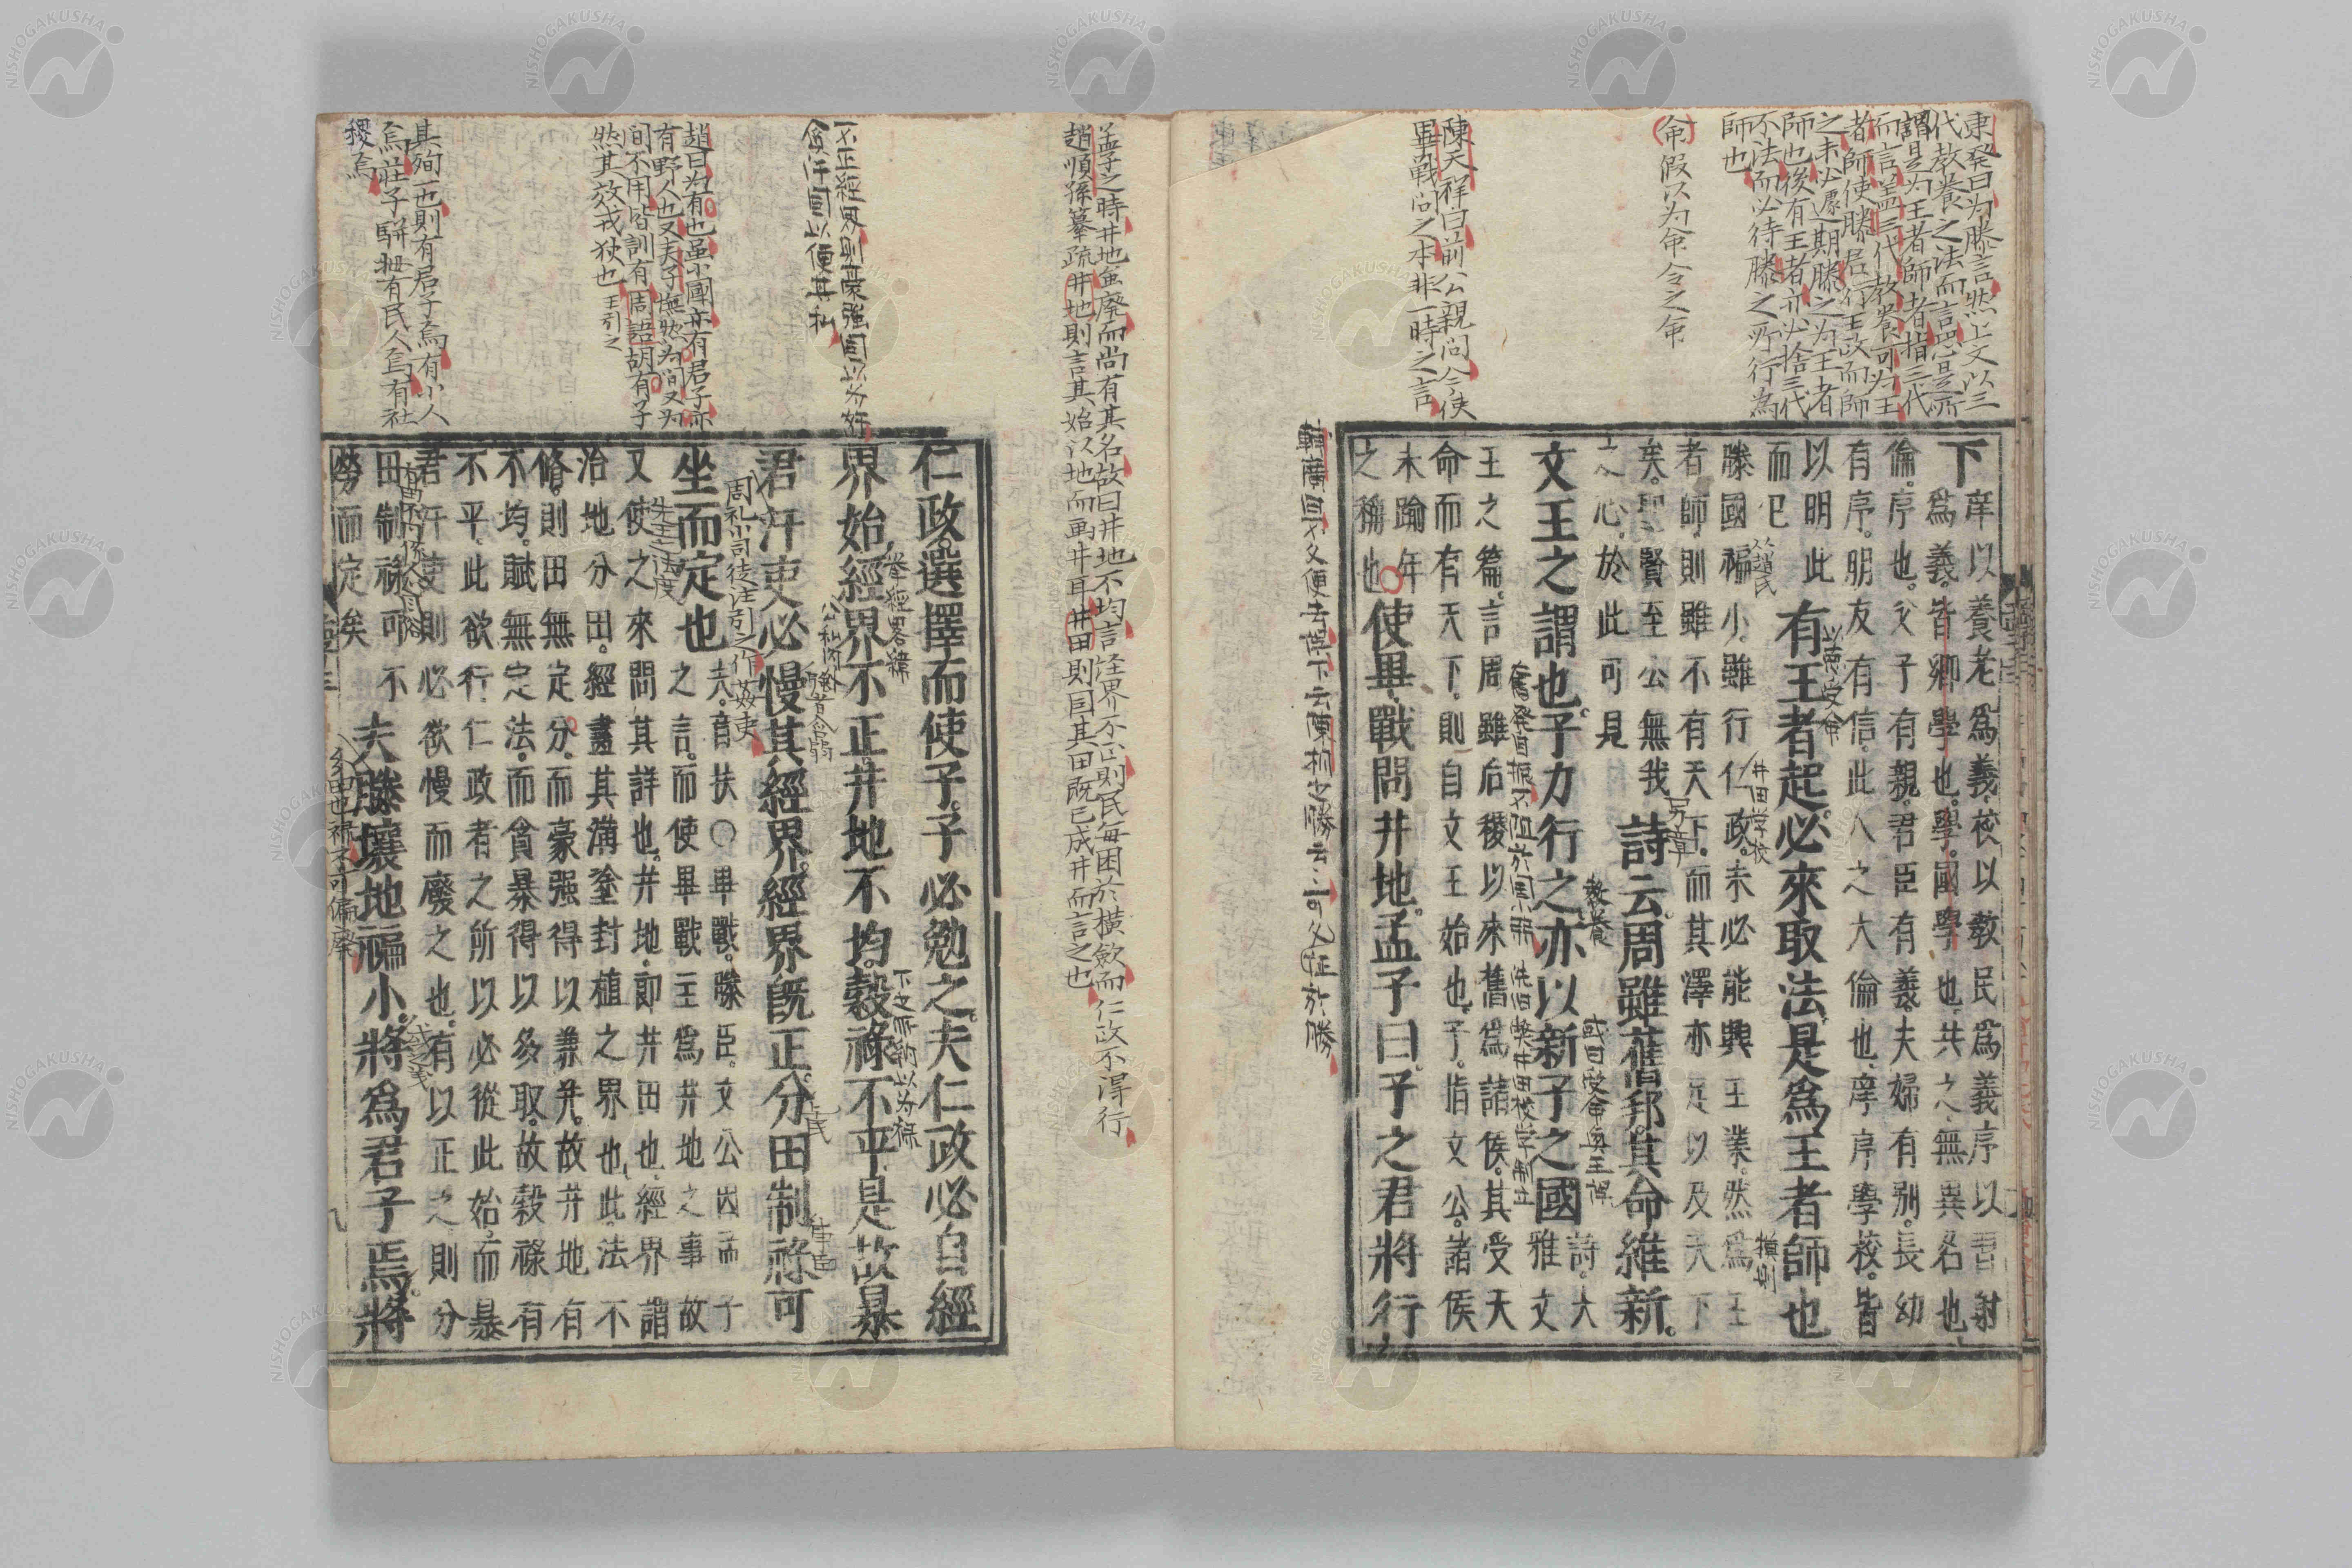 東發曰为滕言然上文以三
代教養之法而言恐是所
謂是为王者師者指三代
而言盖三代教養可为王
者師使滕君行王政而師
之未必遽期滕之为王者
師也後有王者亦必捨三代
不法而必待滕之所行為
師也
命假以为命令之命
陳天祥曰前公親问今使
畢戰问之本非一時之言
下
庠以養老爲義校以教民爲義序以習射
爲義皆鄉學也學國學也共之無異名也
倫序也父子有親君臣有義夫婦有別長幼
有序朋友有信此人之大倫也庠序學校皆
以明此
而已
有王者起必來取法是爲王者師也
滕國褊小雖行仁政未必能興王業然爲王
者師則雖不有天下而其澤亦足以及天下
矣聖賢至公無我
之心於此可見
詩云周雖舊邦其命維新
文王之謂也子力行之亦以新子之國
詩大
雅文
王之篇言周雖后稷以來舊爲諸侯其受天
命而有天下則自文王始也子指文公諸侯
未踰年
之稱也
使畢戰問井地孟子曰子之君將行
以德受命
井田学校
另章
教養
孟子之時井地虽廢而尚有其名故曰井地不均言
趙順孫纂疏井地則言其始以地而画井耳井田則因其田既已成井而言之也
仁政不得行
不正經界則豪强因以为奸
貪汙因以便其私
趙曰为有也虽小國亦有君子亦
有野人也又夫子憮然为间又为
间不用皆訓有周語胡有子
然其效戎狄也王引之
其殉一也則有君子焉有小人
焉莊子駢拇有民人焉有社
稷焉
仁政選擇而使子子必勉之夫仁政必自經
界始經界不正井地不均穀祿不平是故暴
君汙吏必慢其經界經界旣正分田制祿可
坐而定也
夫音扶○畢戰滕臣文公因孟子
之言而使畢戰主爲井地之事故
又使之來問其詳也井地卽井田也經界謂
治地分田經畫其溝塗封植之界也此法不
脩則田無定分而豪强得以兼幷故井地有
不均賦無定法而貪暴得以多取故穀祿有
不平此欲行仁政者之所以必從此始而暴
君汙吏則必欲慢而廢之也有以正之則分
田制祿可不
勞而定矣
夫滕壤地褊小將爲君子焉將
周礼小司徒注引之作姦吏